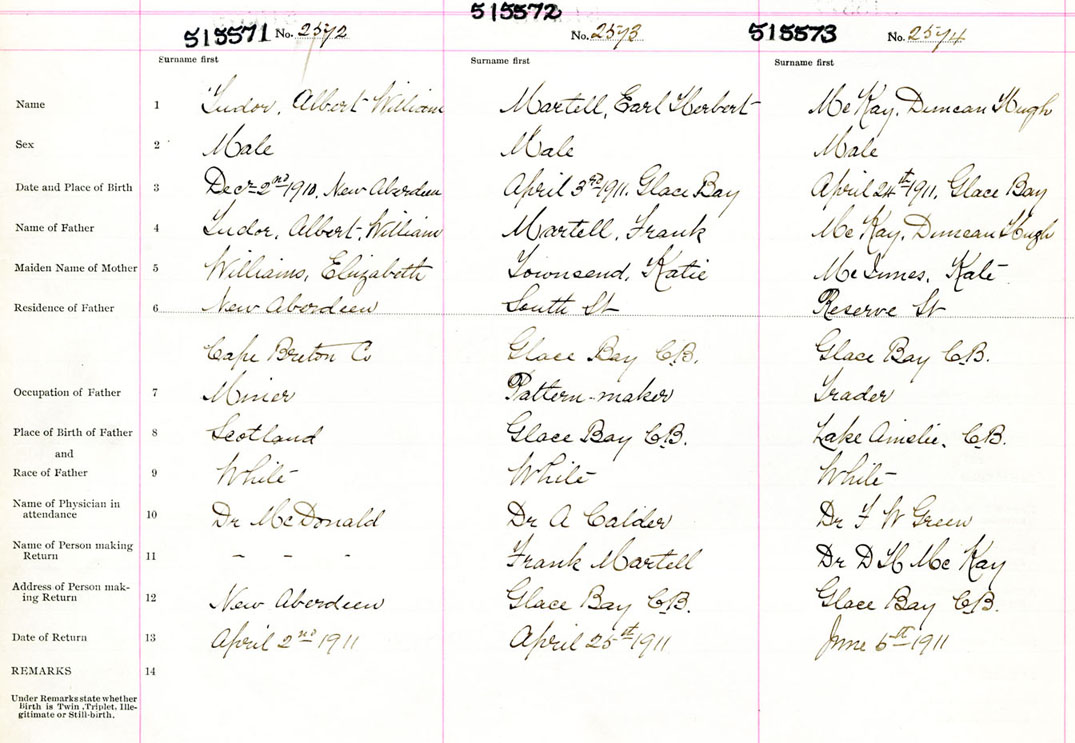 515571 No. 2572 515572 No. 2573 515573 No. 2574
Surname first Surname first Surname first
Name 1 Tudor, Albert William Martell, Earl Herbert McKay, Duncan Hugh
Sex 2 Male Male Male
Date and Place of Birth 3 Decr 2nd 1910, New Aberdeen April 3rd 1911, Glace Bay April 24th 1911, Glace Bay
Name of Father 4 Tudor, Albert William Martell, Frank McKay, Duncan Hugh
Maiden Name of Mother 5 Williams, Elizabeth Townsend, Katie McInnes, Kate
Residence of Father 6 New Aberdeen South St Reserve St
Cape Breton Co Glace Bay C.B. Glace Bay C.B.
Occupation of Father 7 Miner Pattern-maker Trader
Place of Birth of Father 8 Scotland Glace Bay C.B. Lake Ainslie, C.B.
and
Race of Father 9 White White White
Name of Physician in
attendance 10 Dr McDonald Dr A Calder Dr F W Green
Name of Person making
Return 11 - - - Frank Martell Dr D H McKay
Address of Person mak-
ing Return 12 New Aberdeen Glace Bay C.B. Glace Bay C.B.
Date of Return 13 April 2nd 1911 April 25th 1911 June 6th 1911
REMARKS 14
Under Remarks state whether
Birth is Twin, Triplet, Ille-
gitimate or Still-birth.